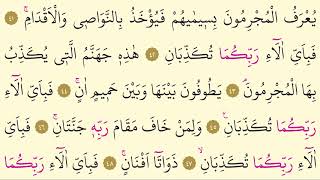 يُعْرَفُ الْمُجْرِمُونَ بِسِيمٰيهُمْ فَيُؤْخَذُ بِالنَّوَاصٖي وَالْاَقْدَامِۚ ﴿٤١﴾
فَبِاَيِّ اٰلَٓاءِ رَبِّكُمَا تُكَذِّبَانِ ﴿٤٢﴾ هٰذِهٖ جَهَنَّمُ الَّتٖي يُكَذِّبُ
بِهَا الْمُجْرِمُونَۢ ﴿٤٣﴾ يَطُوفُونَ بَيْنَهَا وَبَيْنَ حَمٖيمٍ اٰنٍۚ ﴿٤٤﴾ فَبِاَيِّ اٰلَٓاءِ
رَبِّكُمَا تُكَذِّبَانِ۟ ﴿٤٥﴾ وَلِمَنْ خَافَ مَقَامَ رَبِّهٖ جَنَّتَانِۚ ﴿٤٦﴾ فَبِاَيِّ
اٰلَٓاءِ رَبِّكُمَا تُكَذِّبَانِۙ ﴿٤٧﴾ ذَوَاتَٓا اَفْنَانٍۚ ﴿٤٨﴾ فَبِاَيِّ اٰلَٓاءِ رَبِّكُمَا